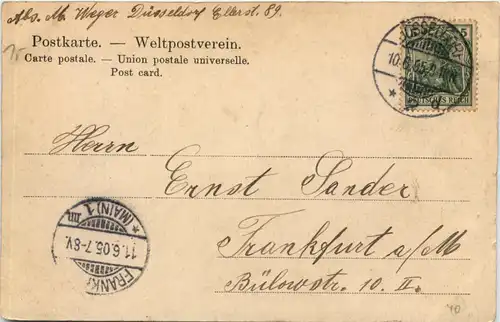 Abs. M. Weger Düsseldorf Ellerst. 89.
Postkarte. — Weltpostverein.
Carte postale. — Union postale universelle.
Post card.
5
DÜSSELDORF
DEUTSCHES REICH
Herrn
Ernst Sander
Frankfurt a/M
Bülowstr. 10. II.
(MAIN) 1
11.6.05.7-8V.
FRANKF